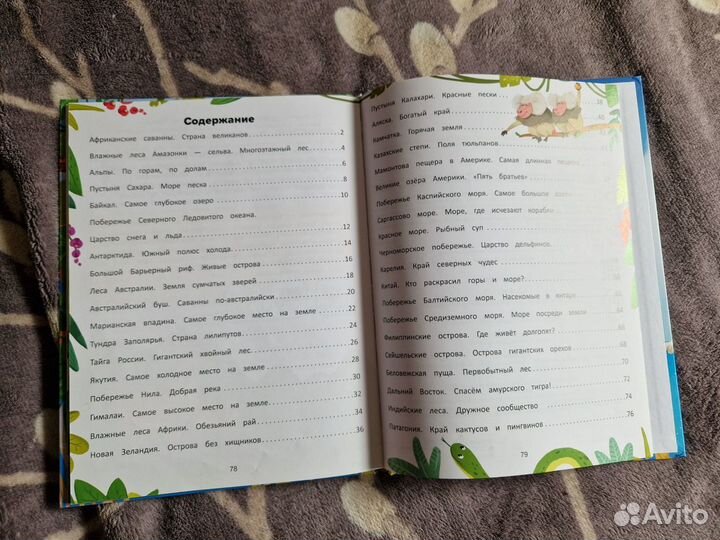 Содержание
Африканские саванны. Страна великанов 2
Влажные леса Амазонки — сельва. Многоэтажный лес 4
Альпы. По горам, по долам 6
Пустыня Сахара. Море песка 8
Байкал. Самое глубокое озеро 10
Побережье Северного Ледовитого океана.
Царство снега и льда 12
Антарктида. Южный полюс холода 14
Большой Барьерный риф. Живые острова 16
Леса Австралии. Земля сумчатых зверей 18
Австралийский буш. Саванны по-австралийски 20
Марианская впадина. Самое глубокое место на земле 22
Тундра Заполярья. Страна лилипутов 24
Тайга России. Гигантский хвойный лес 26
Якутия. Самое холодное место на земле 28
Побережье Нила. Добрая река 30
Гималаи. Самое высокое место на земле 32
Влажные леса Африки. Обезьяний рай 34
Новая Зеландия. Острова без хищников 36
78
Пустыня Калахари. Красные пески 38
Аляска. Богатый край 40
Камчатка. Горячая земля
Казахские степи. Поля тюльпанов
Мамонтова пещера в Америке. Самая длинная пещера
Великие озёра Америки. «Пять братьев»
Побережье Каспийского моря. Самое большое
Саргассово море. Море, где исчезают корабли
Красное море. Рыбный суп
Черноморское побережье. Царство дельфинов
Карелия. Край северных чудес
Китай. Кто раскрасил горы и море?
Побережье Балтийского моря. Насекомые в янтаре
Побережье Средиземного моря. Море посреди земли 64
Филиппинские острова. Где живёт долгопят? 66
Сейшельские острова. Острова гигантских орехов 68
Беловежская пуща. Первобытный лес 70
Дальний Восток. Спасём амурского тигра! 72
Индийские леса. Дружное сообщество 74
Патагония. Край кактусов и пингвинов 76
79
Avito